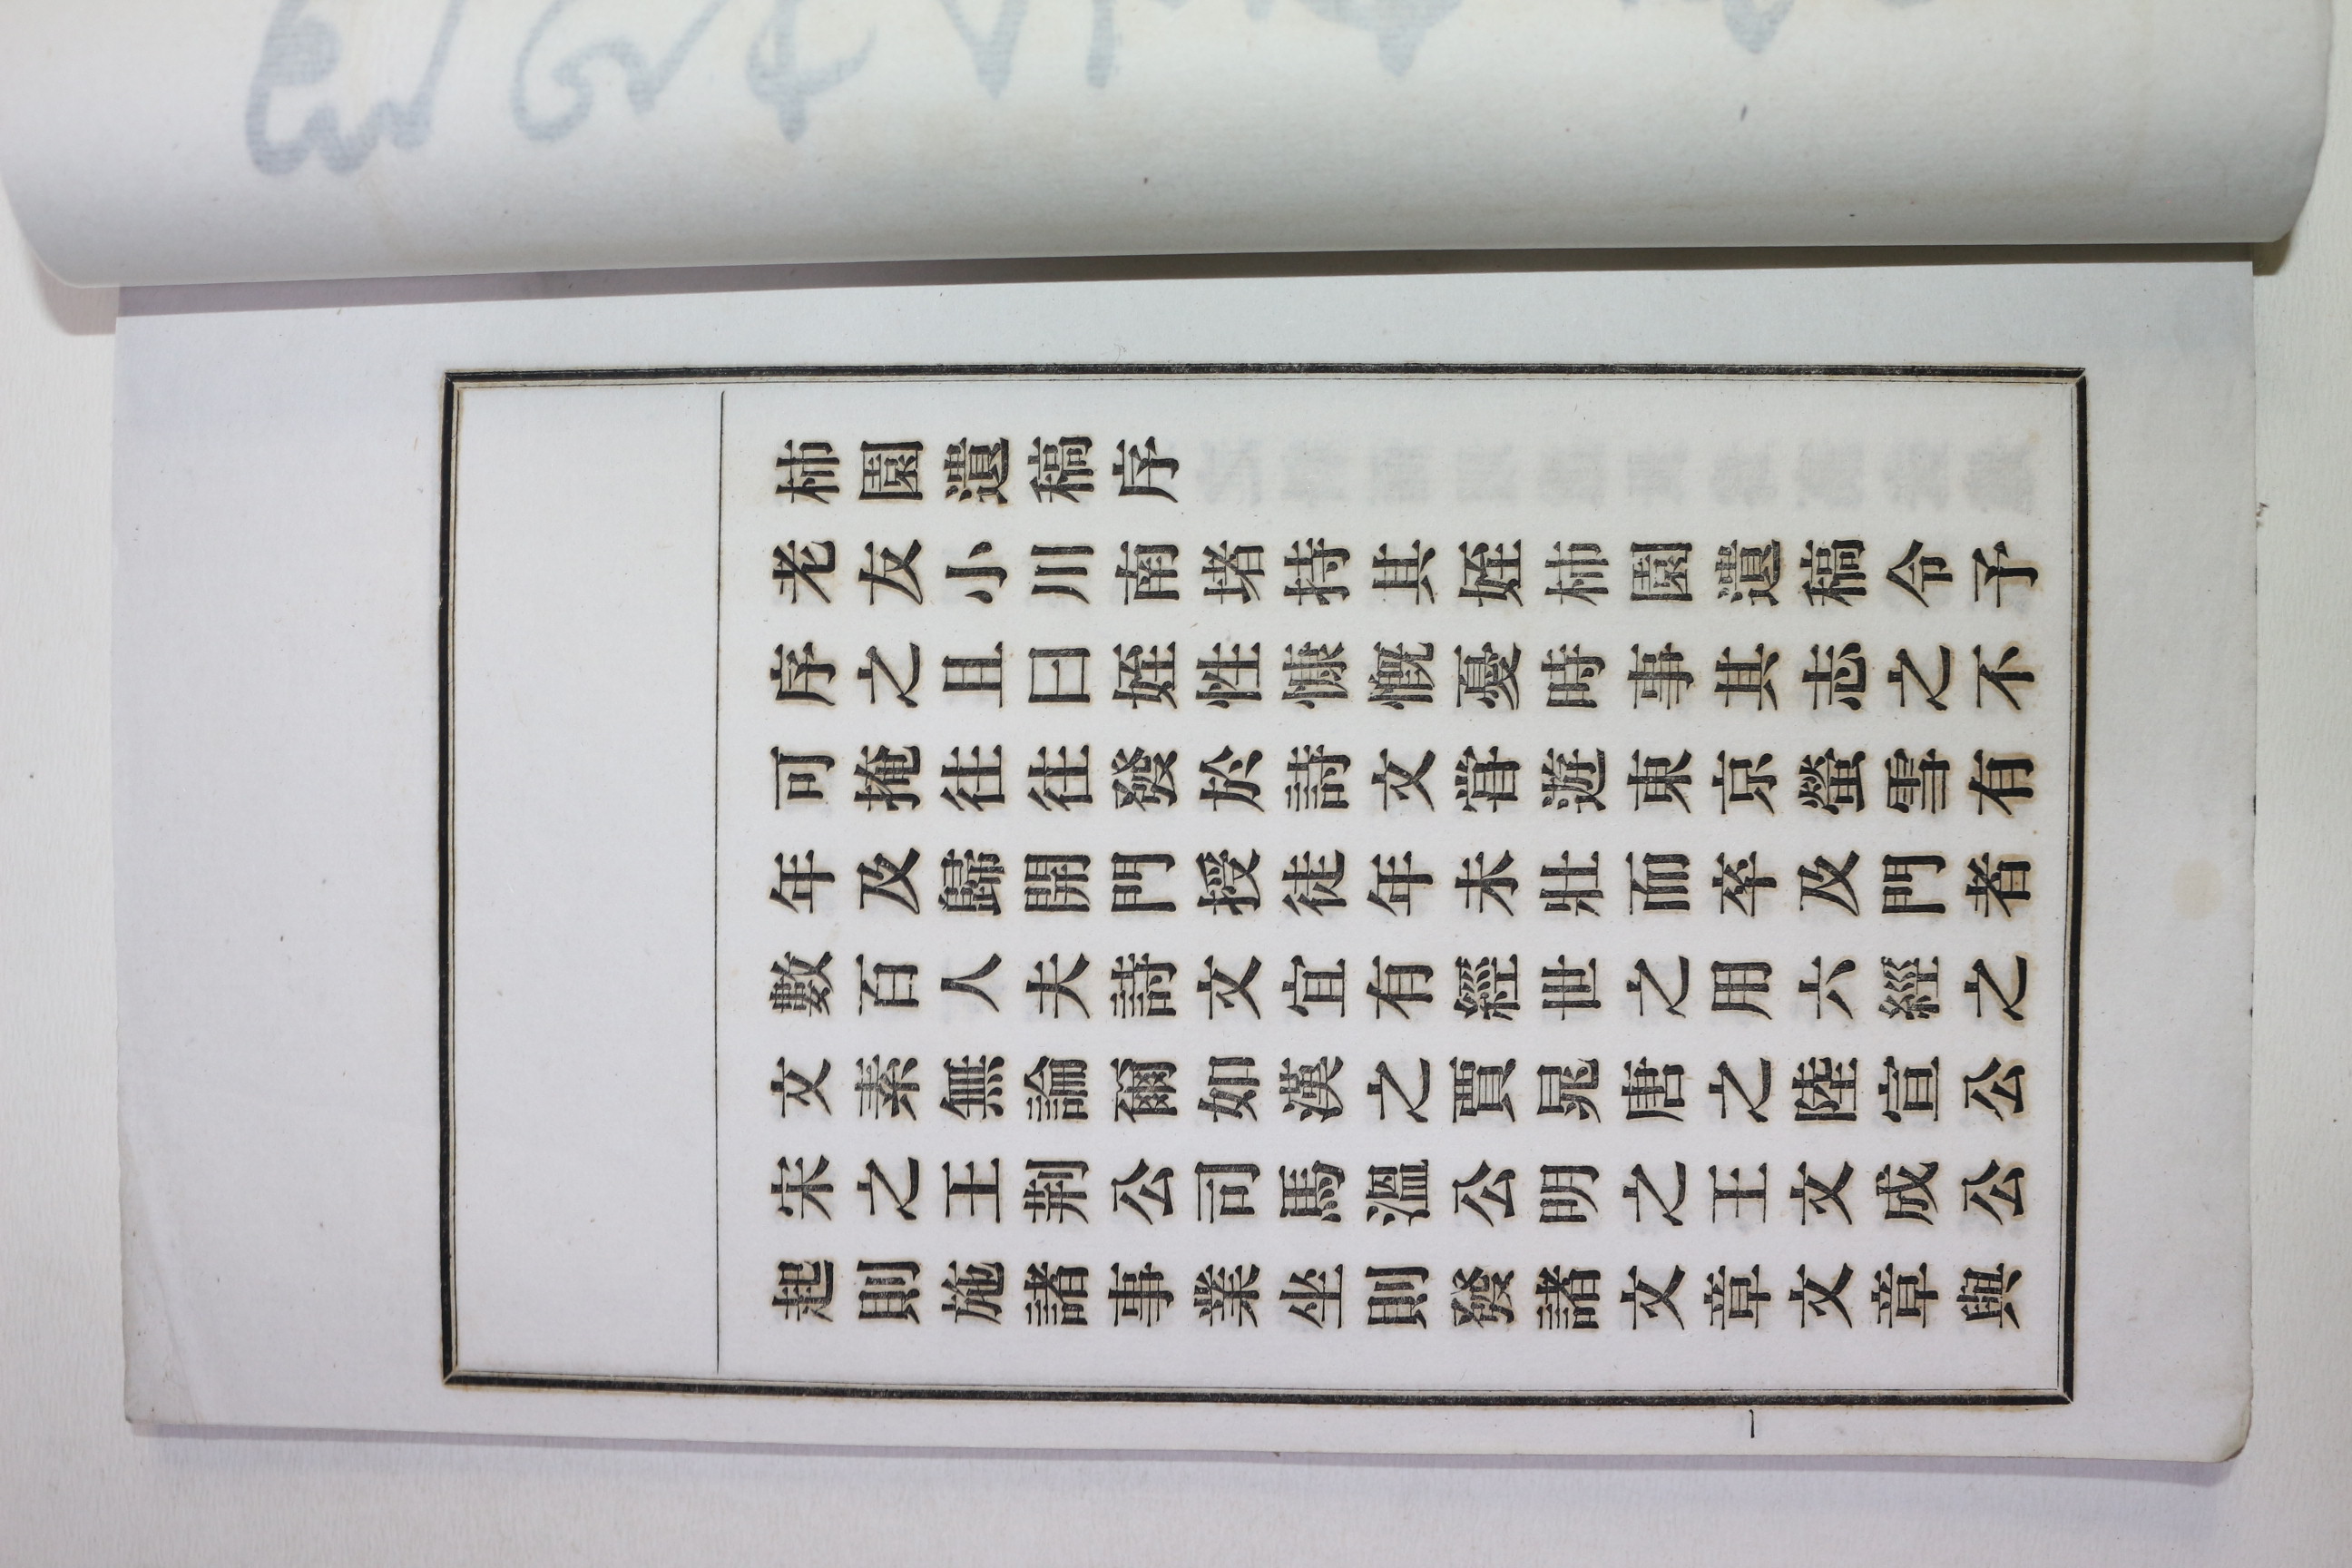 柿園遺稿序
老友小川南堵持其姪柿園遺稿令予
序之且曰姪性慷慨憂時事其志之不
可掩往往發於詩文甞遊東京螢雪有
年及歸開門授徒年未壯而卒及門者
數百人夫詩文宜有經世之用六經之
文素無論爾如漢之賈晁唐之陸宣公
宋之王荆公司馬溫公明之王文成公
起則施諸事業坐則發諸文章文章與